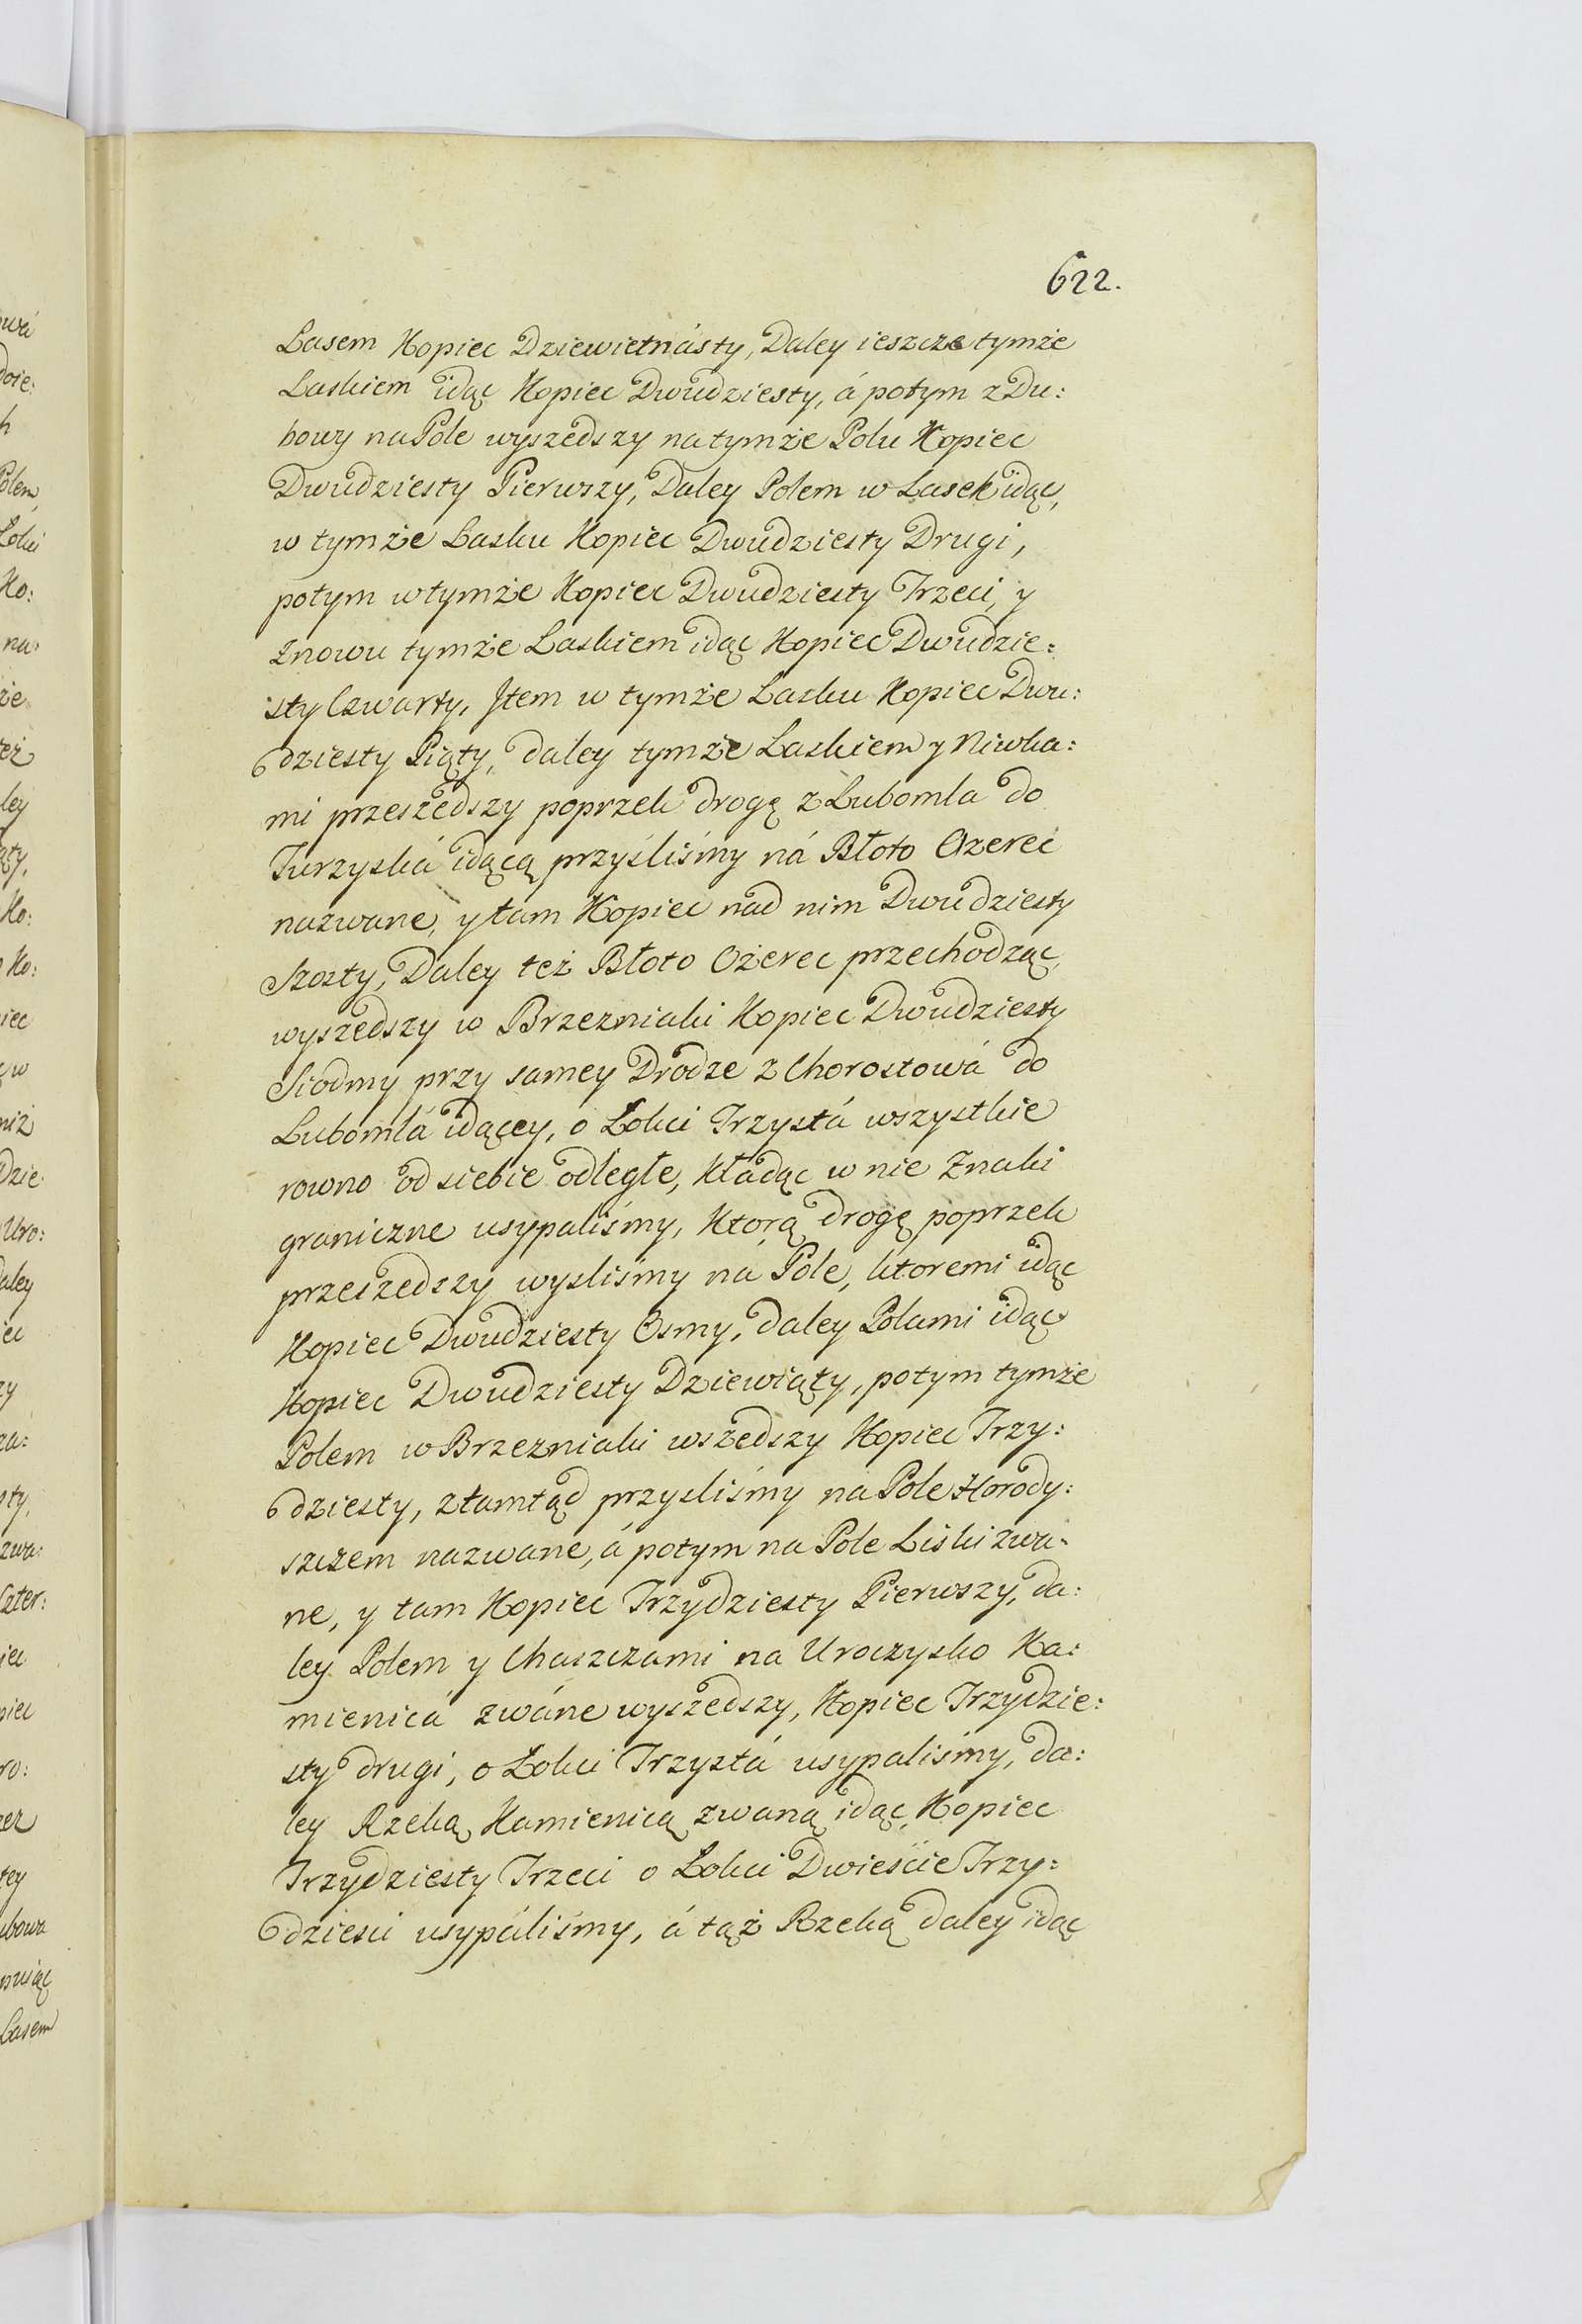 622.
Lasem Kopiec Dziewietnásty, Daley ieszcze tymże
Laskiem idąc Kopiec Dwudziesty, á potym z Du:
bowy na Pole wyszedszy na tymże Polu Kopiec
Dwudziesty Pierwszy, Daley Polem w Lasek idąc,
w tymże Lasku Kopiec Dwudziesty Drugi,
potym w tymże Kopiec Dwudziesty Trzeci, y
znowu tymże Laskiem idąc Kopiec Dwudzie:
sty Czwarty, Item w tymże Lasku Kopiec Dwu:
dziesty Piąty, daley tymże Laskiem y Niwka:
mi przeszedszy poprzek drogę z Lubomla do
Turzyská idącą przyśliśmy ná Błoto Ozerec
nazwane, y tam Kopiec nad nim Dwudziesty
Szosty, Daley też Błoto Ozerec przechodząc,
wyszedszy w Brzezniaki Kopiec Dwudziesty
Siodmy przy samey Drodze z Chorostowá do
Lubomlá idącey, o Łokci Trzystá wszystkie
rowno od siebie odległe, kładąc w nie Znaki
graniczne usypaliśmy, Ktorą drogę poprzek
przeszedszy wysliśmy ná Pole, ktoremi idąc
Kopiec Dwudziesty Osmy, daley Polami idąc
Kopiec Dwudziesty Dziewiąty, potym tymże
Polem w Brzezniaki wszedszy Kopiec Trzy:
dziesty, ztamtąd przysliśmy na Pole Horody:
szczem nazwane, á potym na Pole Liski zwa:
ne, y tam Kopiec Trzydziesty Pierwszy, da:
ley Polem y Chaszczami na Uroczysko Ka:
mienicá zwáne wyszedszy, Kopiec Trzydzie:
sty drugi, o Łokci Trzystá usypaliśmy, da:
ley Rzeką Kamienicą zwaną idąc, Kopiec
Trzydziesty Trzeci o Łokci Dwieście Trzy:
dzieści usypáliśmy, á tąż Rzeką daley idąc